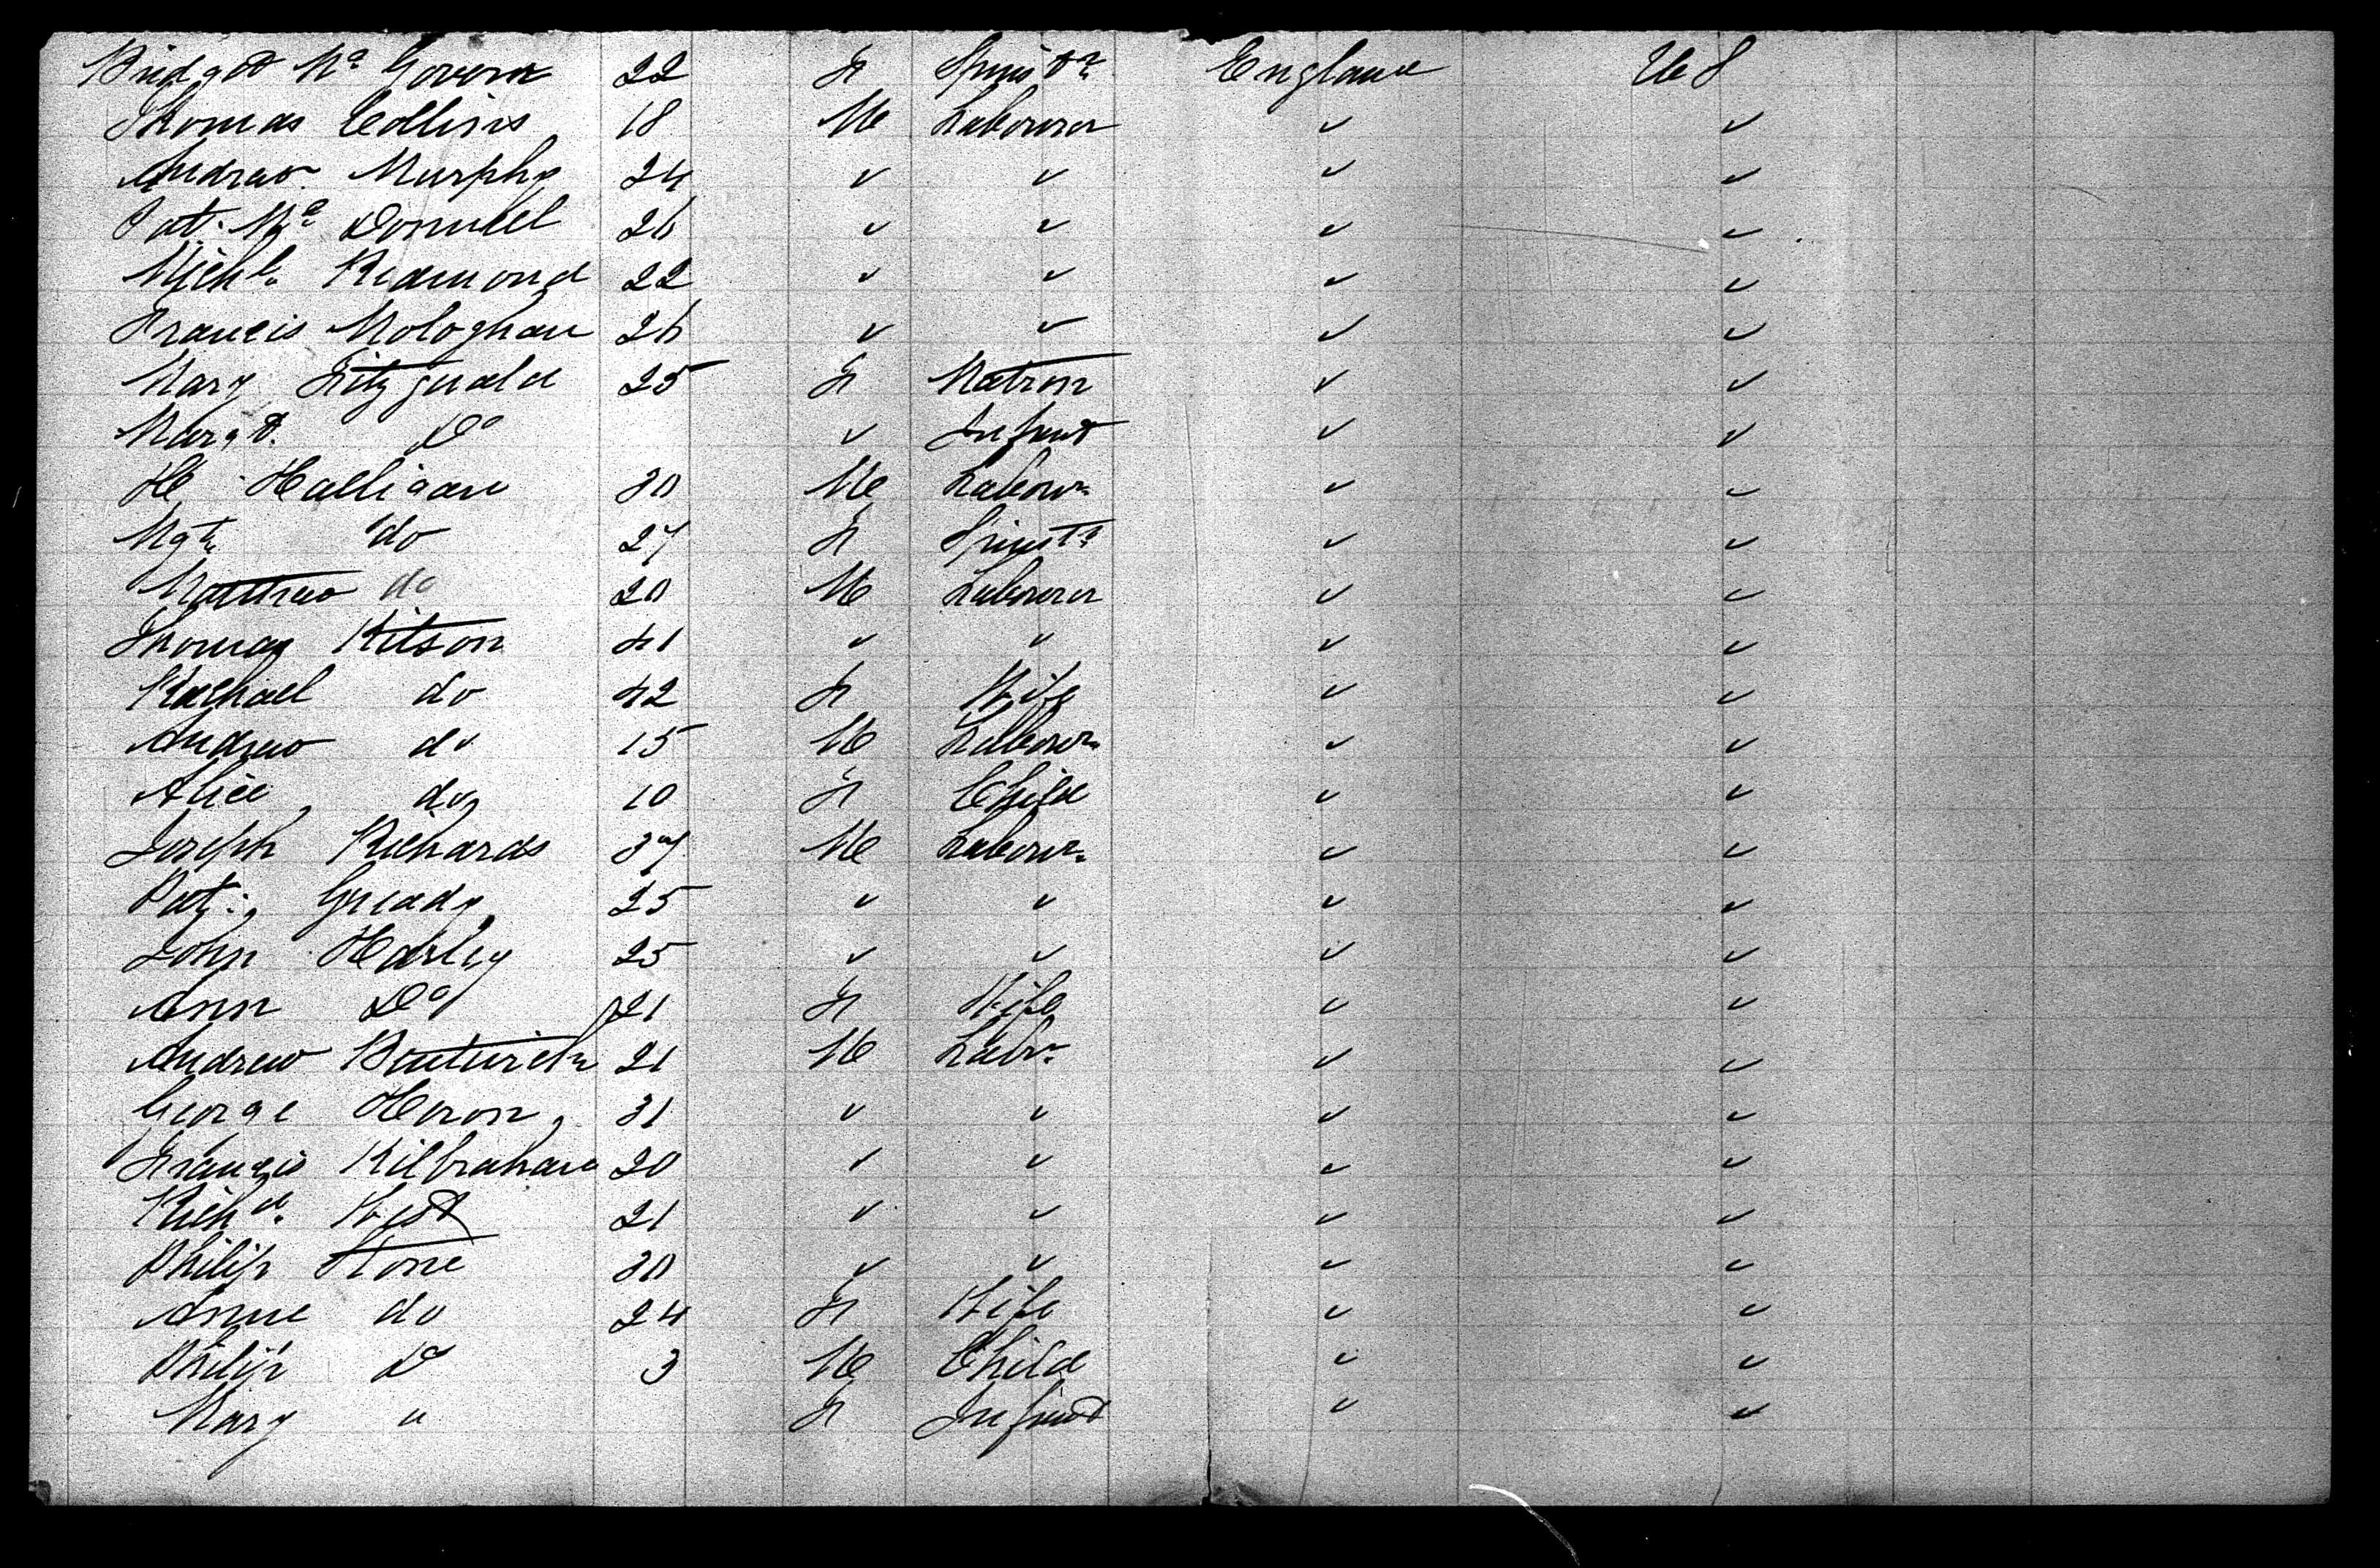 Bridget Mc Govern 22 F Spinstr England U S
Thomas Collins 18 M Labourer ✓ ✓
Andrew Murphy 24 ✓ ✓ ✓ ✓
Pat. Mc Donnell 26 ✓ ✓ ✓ ✓
Michl. Redmond 22 ✓ ✓ ✓ ✓
Francis Mologhan 26 ✓ ✓ ✓ ✓
Mary Fitzgerald 25 F Matron ✓ ✓
Margt. Do ✓ Infant ✓ ✓
H Halligan 30 M Labourr. ✓ ✓
Mgt. do 27 F Spinstr ✓ ✓
Matthew do 20 M Labourer ✓ ✓
Thomas Kitson 41 ✓ ✓ ✓ ✓
Rachael do 42 F Wife ✓ ✓
Andrew do 15 M Labourr. ✓ ✓
Alice do 10 F Child ✓ ✓
Joseph Richards 37 M Labourr. ✓ ✓
Pat. Gready 25 ✓ ✓ ✓ ✓
John Harley 25 ✓ ✓ ✓ ✓
Ann Do 21 F Wife ✓ ✓
Andrew 21 M Labr. ✓ ✓
George Heron 31 ✓ ✓ ✓ ✓
Francis Kilbrahan 20 ✓ ✓ ✓ ✓
Richd. 21 ✓ ✓ ✓ ✓
Philip Stone 30 ✓ ✓ ✓ ✓
Annie do 24 F Wife ✓ ✓
Philip Do 3 M Child ✓ ✓
Mary " F Infant ✓ ✓